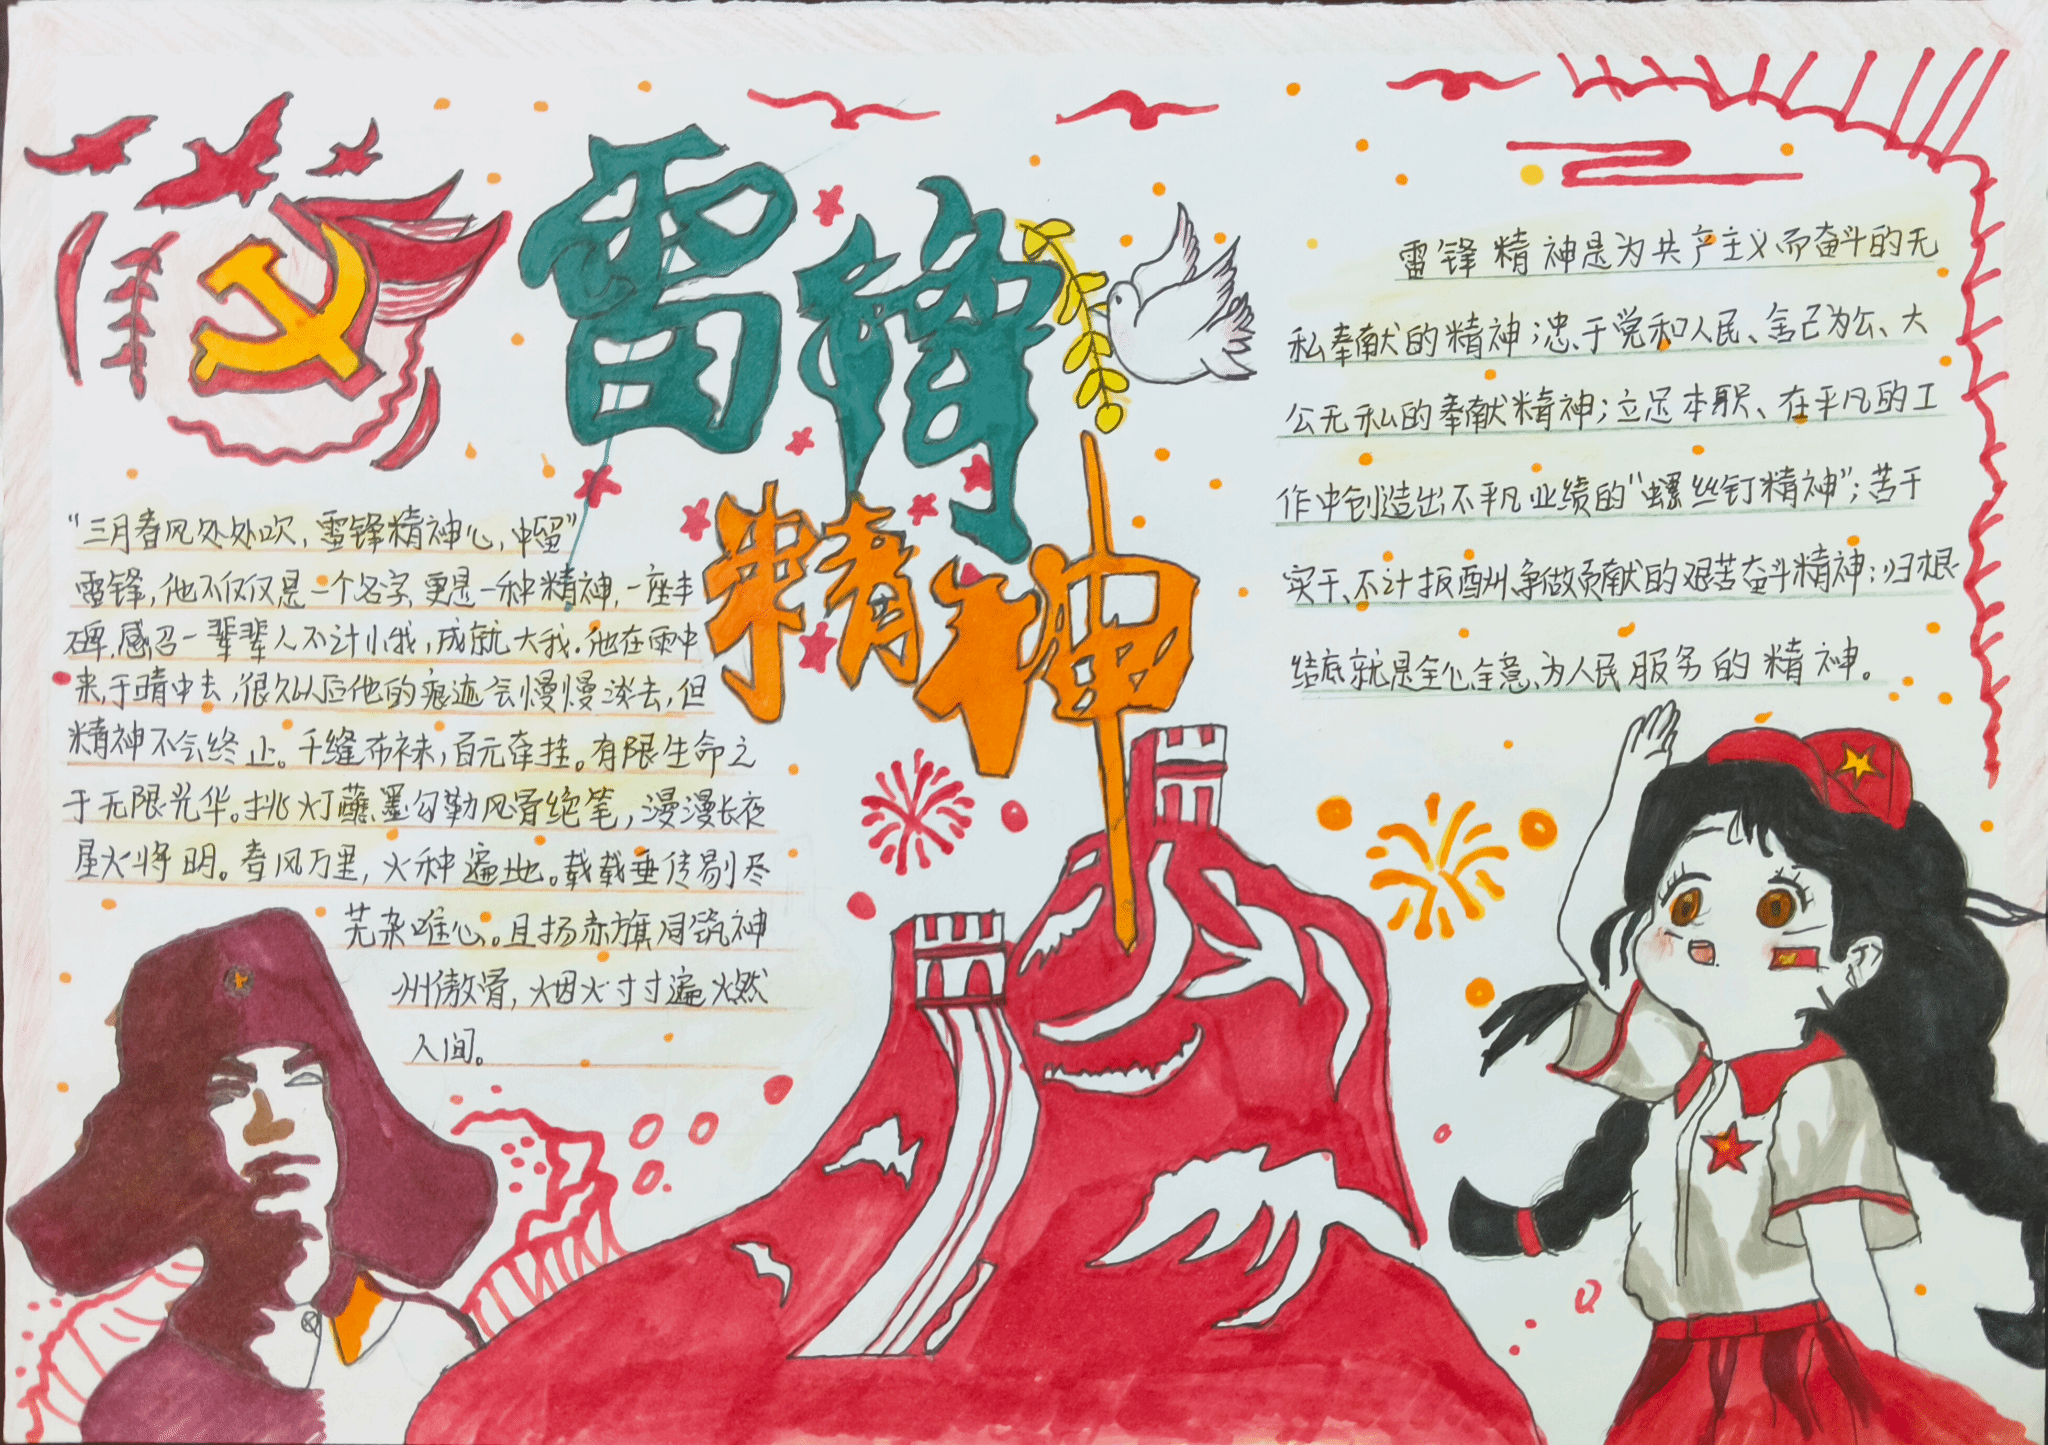 雷锋
精神
"三月春风处处吹,雷锋精神心中留"
雷锋,他不仅仅是一个名字,更是一种精神,一座丰
碑,感召一辈辈人不计小我,成就大我.他在雨中
来,于晴中去,很久以后他的痕迹会慢慢淡去,但
精神不会终止。千缝布袜,百元牵挂。有限生命之
于无限光华。挑灯蘸墨勾勒风骨绝笔,漫漫长夜
星火将明。春风万里,火种遍地。载载垂传剔尽
芜杂唯心。且扬赤旗同筑神
州傲骨,烟火寸寸遍燃
人间。
雷锋精神是为共产主义而奋斗的无
私奉献的精神;忠于党和人民、舍己为公、大
公无私的奉献精神;立足本职、在平凡的工
作中创造出不平凡业绩的"螺丝钉精神";苦干
实干、不计报酬、争做贡献的艰苦奋斗精神;归根
结底就是全心全意为人民服务的精神。